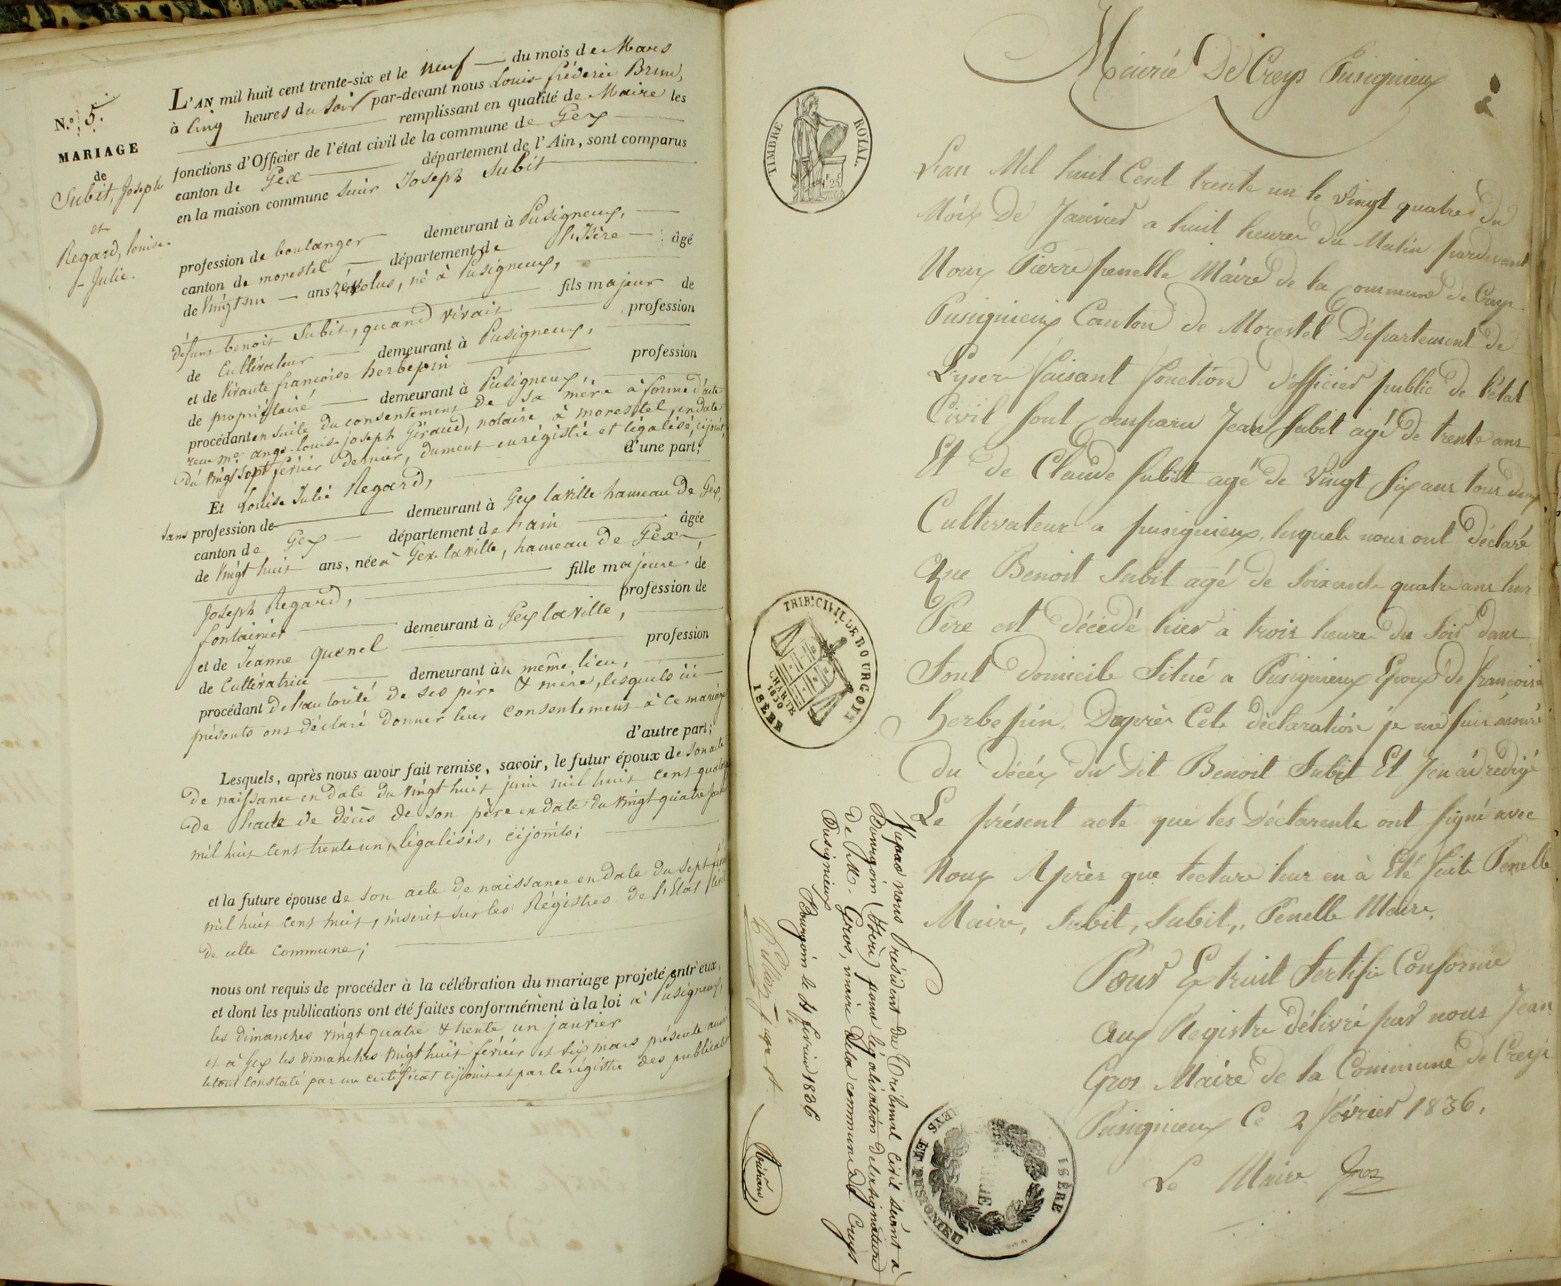 N.º 5.
MARIAGE
de
Subit, Joseph
et
Regard, Louise-
-Julie.
L'AN mil huit cent trente-six et le neuf du mois de Mars
à Cinq heures du Soir par-devant nous Louis fréderic Brun,
remplissant en qualité de Maire les
fonctions d'Officier de l'état civil de la commune de Gex
canton de Gex département de l'Ain, sont comparus
en la maison commune sieur Joseph Subit
profession de boulanger demeurant à Pusigneux,
canton de morestel département de l'Isère âgé
de vingt un ans révolus, né à Pusigneux,
fils majeur de
défunt benoit Subit, quand vivait profession
de Cultivateur demeurant à Pusigneux,
et de vivante françoise herbepin profession
de propriétaire demeurant à Pusigneux,
procédant ensuite du consentement de sa mère à forme d'acte
reçu me ange-louis-joseph Géraud, notaire à morestel, en date
du vingt sept février dernier, dument enrégistré et légalisé, cijoint,
d'une part;
Et Louise Julie Regard,
sans profession de demeurant à Gex laville hameau de Gex,
canton de Gex département de l'ain âgée
de vingt huit ans, née à Gex laville, hameau de Gex,
fille majeure de
Joseph Regard, profession de
fontainier demeurant à Gex laville,
et de Jeanne quenel profession
de Cultivatrice demeurant au même lieu,
procédant de l'autorité de ses père & mère, lesquels ici
présents ont déclaré donner leur consentement à ce mariage
d'autre part;
Lesquels, après nous avoir fait remise, savoir, le futur époux de son acte
de naissance en date du vingt huit juin mil huit cent quatorze
de l'acte de décès de son père en date du vingt quatre janvier
mil huit cent trente un, légalisés, cijoints;
et la future épouse de son acte de naissance en date du sept
mil huit cent huit, inscrit sur les Régistres de l'Etat Civil
de cette commune;
nous ont requis de procéder à la célébration du mariage projeté entr'eux,
et dont les publications ont été faites conformément à la loi à Pusigneux,
les dimanches vingt quatre & trente un janvier
et à Gex les dimanches vingt huit février et six mars présente année
le tout constaté par un certificat cijoint et par le régistre des publications
Mairie De Creys Pusignieux
2
TIMBRE ROYAL.
L'an Mil huit Cent trente un le vingt quatre du
Mois De Janvier a huit heures du Matin pardevant
Nous Pierre penelle Maire de la Commune de Creys
Pusignieux Canton de Morestel Département de
L'yser faisant fonction d'officier public de l'état
Civil sont comparu Jean Subit agé de trente ans
Et de Claude Subit agé de vingt six ans tous deux
Cultivateur a pusignieux, lesquels nous ont déclaré
que Benoit Subit agé de Soixante quatre ans leur
Père est décédé hier à trois heure du Soir dans
Sont domicile Situé a Pusignieux Epoux de françoise
herbepin. Daprès Cete déclaration je me suis assuré
du décéx du dit Benoit Subit Et J'en ai redigé
Le présent acte que les Déclarents ont signé avec
Nous Après que lecture leur en à Eté faite Penelle
Maire, Subit, Subit,, Penelle Maire.
Pour Extrait Sertifié Conforme
aux Registre délivré par nous Jean
Gros Maire de la Commune de Creys
Pusignieux Ce 2 février 1836.
Le Maire Gros
TRIB. CIVIL DE BOURGOIN
CHARTE
1830
ISÈRE
Vu par nous Président du Tribunal Civil séant à
Bourgoin (Isère) pour légalisation de la signature
de M. Gros, maire de la commune de Creys
Pusignieux
Bourgoin le 4 février 1836
ISÈRE